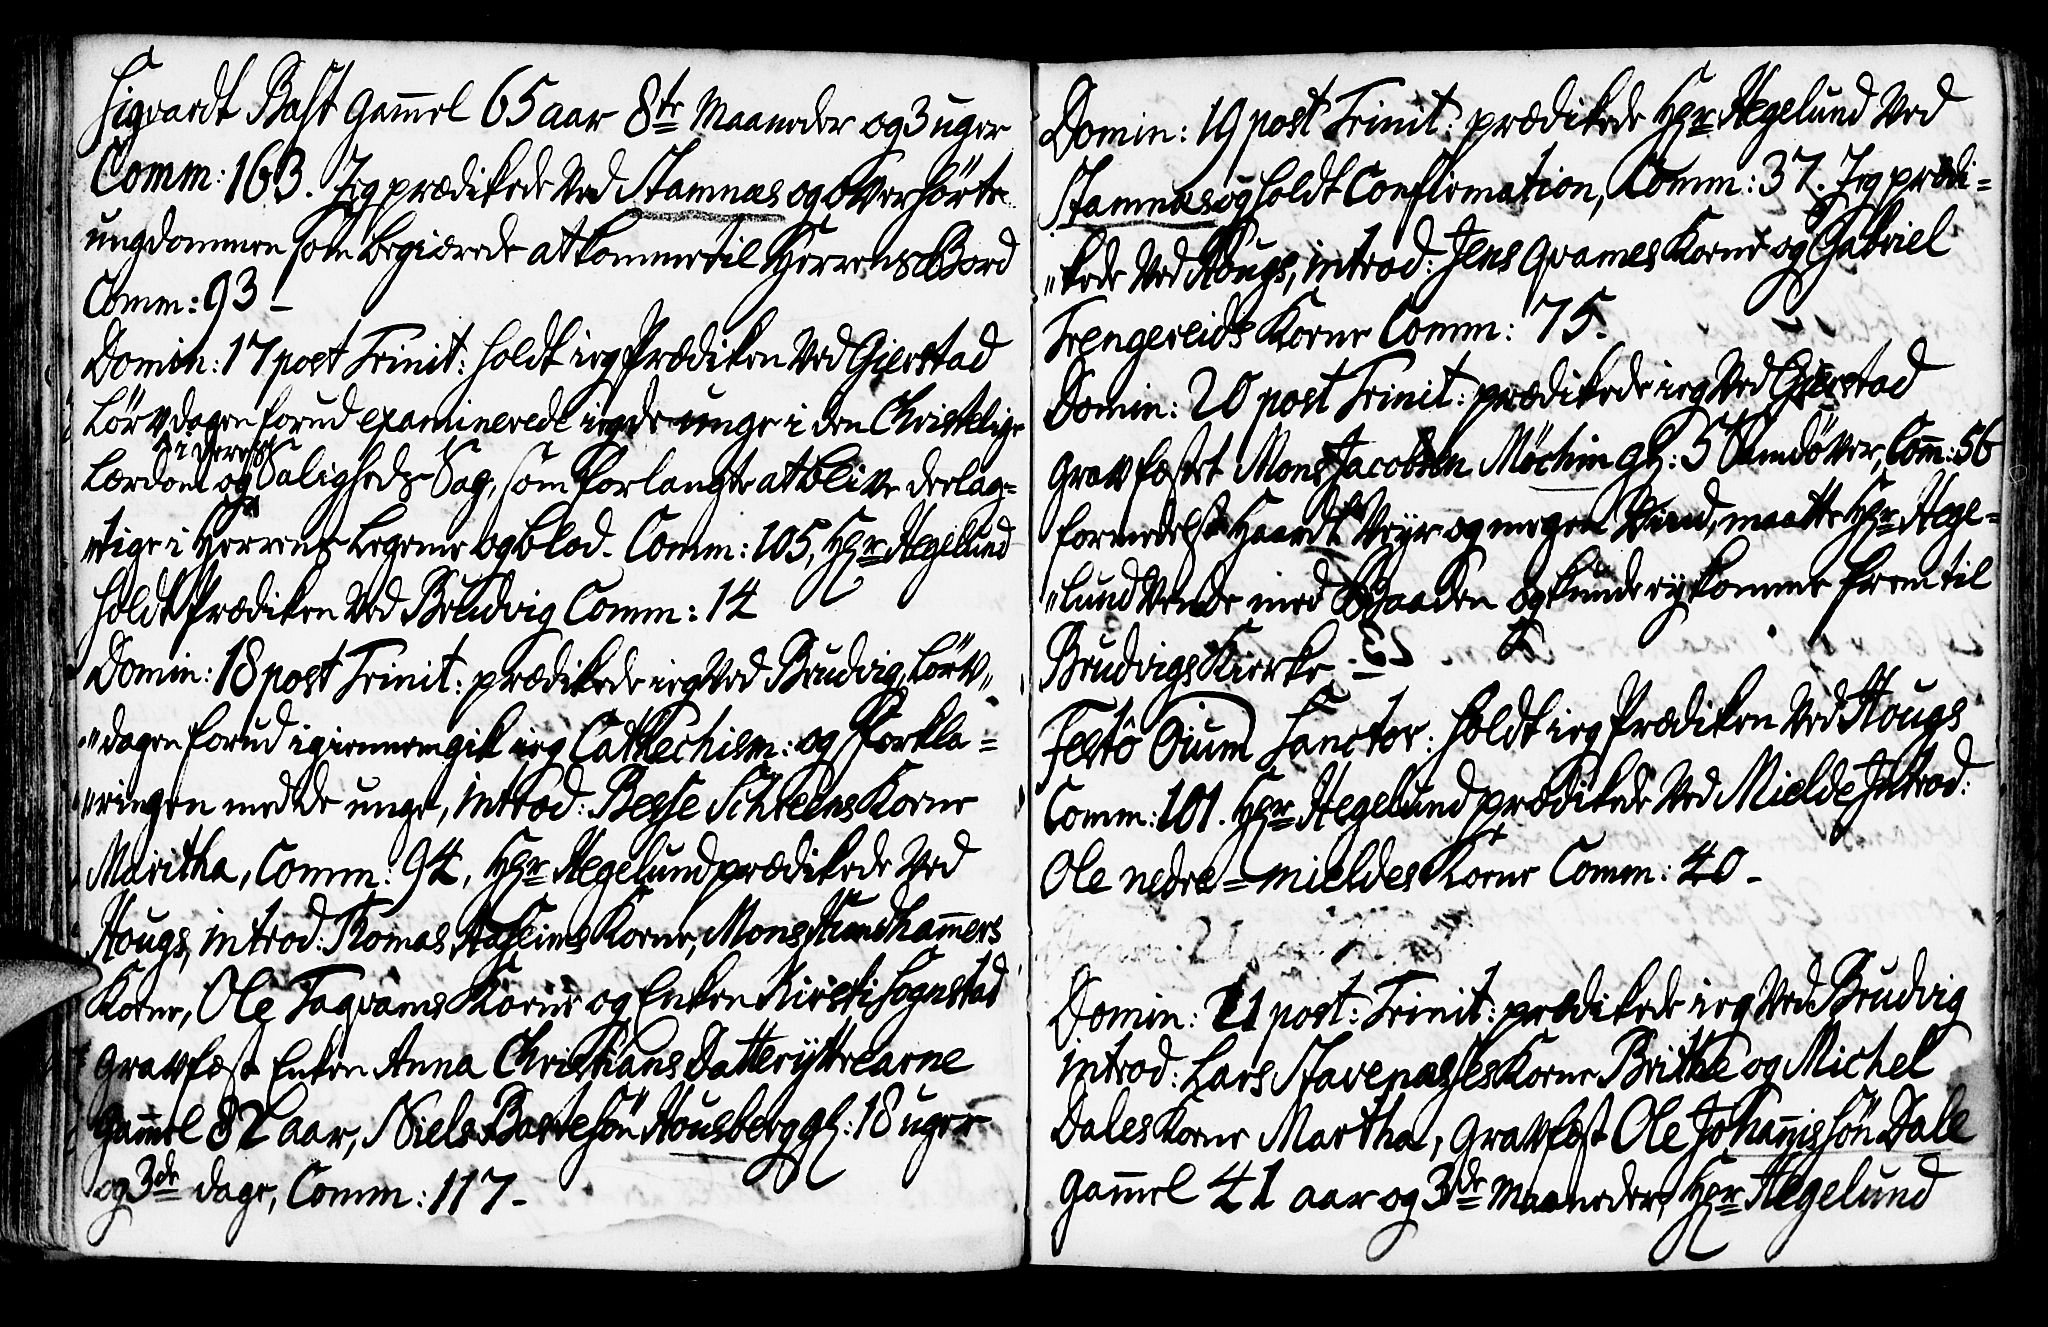 Sigvardt Bast gam̄el 65 aar 8te Maaneder og 3 uger
Comm: 163. Jeg prædikede Ved Stamnæs og overhörte
ungdommen som begiærede at komme til Herrens Bord
Comm: 93 –
Domin: 17 post Trinit: holdt ieg Prædiken Ved Gierstad
Lörvdagen forud examinerede ieg de unge i den Christelige
i deres
Lærdom og Saligheds Sag, som forlangte at blive deelag=
"tige i Herrens Legeme og blod. Comm: 105, Hr Hegelund
holdt Prædiken Ved Brudvig Comm: 14
Domin: 18 post Trinit: prædikede ieg Ved Brudvig, Lörv"
"dagen forud igiennemgik ieg Cathechism: og Forkla=
"ringen med de unge, introd: Besse Schreens Kone
Maritha, Comm: 94, Hr Hegelund prædikede Ved
Hougs, introd: Thomas Aasheims Kone, Mons Hundham̄ers
Kone, Ole Tagvams Kone og Enken Kirsti Sognstad
gravfæst Enken Anna Christians Datter yttrearne
gam̄el 82 aar, Niels Baresön Housberg gl: 18 uger
og 3de dage, Comm: 117 –
Domin: 19 post Trinit: prædikede Hr Hegelund Ved
Stamnæs og holdt Confirmation, Comm: 37. Jeg prædi=
"kede Ved Hougs, introd: Jens Qvames Kone og Gabriel
Trengereids Kone Comm: 75.
Domin: 20 post Trinit: prædikede ieg Ved Gierstad
gravfæstet Mons Jacobsen Möchim gl: 5 Samdöver, Com̄: 56
formedelst Haardt Veyr og megen Vind, maatte Hr Hege=
"lund Vende med Baaden og kunde ey komme frem til
Brudvigs Kierke. –
Festo Oium Sanctor: holdt ieg Prædiken Ved Hougs
Comm: 101. Hr Hegelund prædikede Ved Mielde Introd:
Ole nedre=mieldes Kone Comm: 40 –
Domin: 21 post: Trinit: prædikede ieg Ved Brudvig
introd: Lars Stavenæses Kone Brithe og Michel
Dales Kone Martha, gravfæst Ole Johan̄issön Dale
gam̄el 41 aar og 3de Maaneder, Hr Hegelund